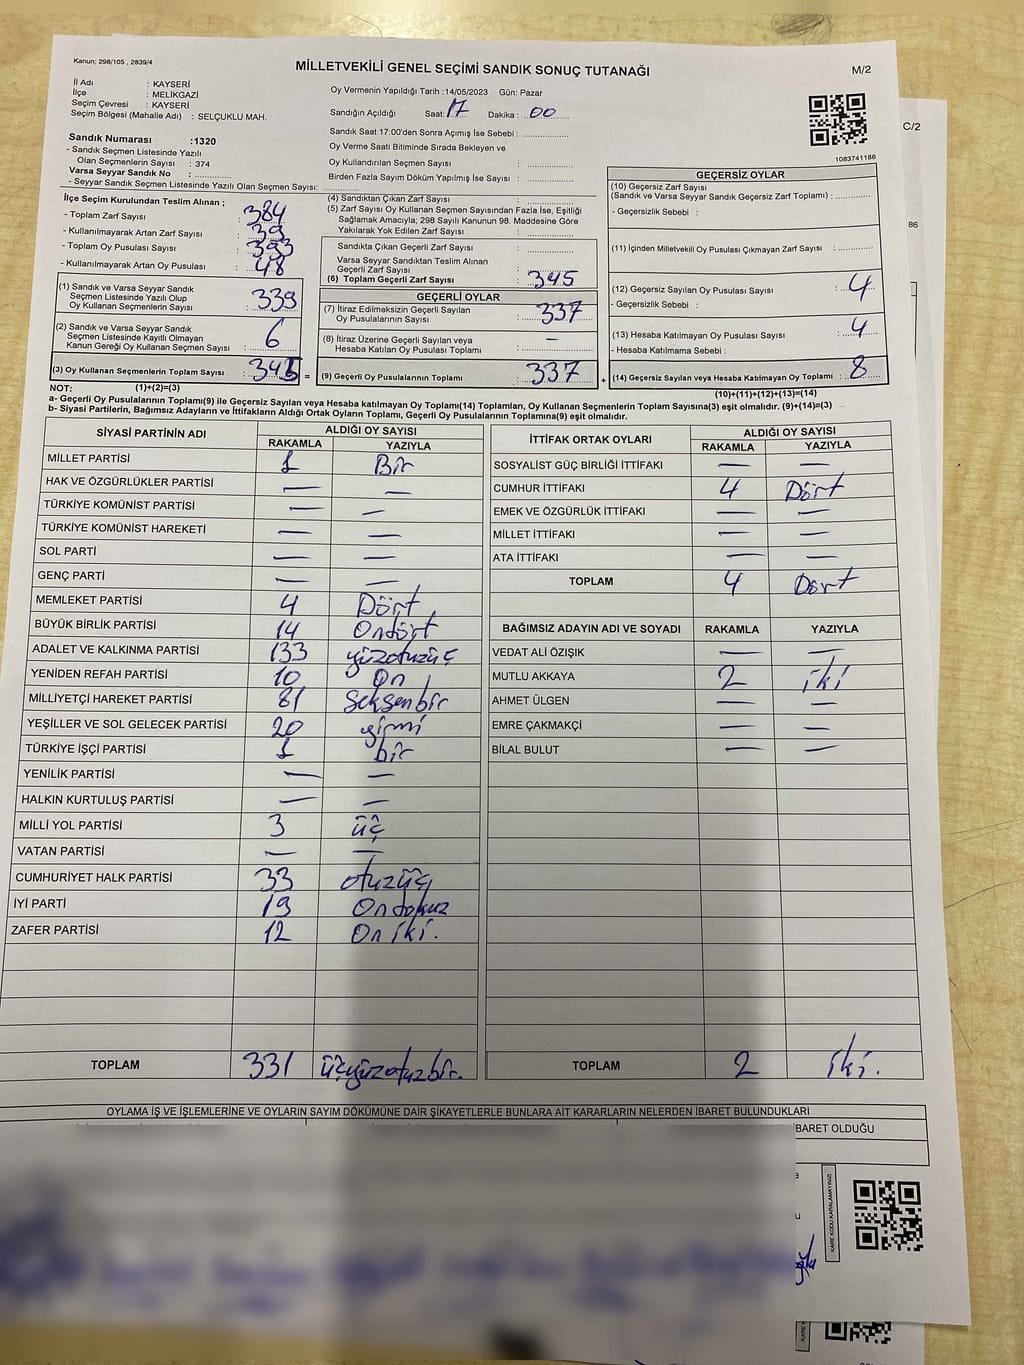 Kanun; 298/105 , 2839/4
MİLLETVEKİLİ GENEL SEÇİMİ SANDIK SONUÇ TUTANAĞI
M/2
İl Adı : KAYSERİ
İlçe : MELİKGAZİ
Seçim Çevresi : KAYSERİ
Seçim Bölgesi (Mahalle Adı) : SELÇUKLU MAH.
Oy Vermenin Yapıldığı Tarih :14/05/2023 Gün: Pazar
Sandığın Açıldığı Saat: 17 Dakika : 00
Sandık Saat 17:00'den Sonra Açımış İse Sebebi :
Oy Verme Saati Bitiminde Sırada Bekleyen ve
Oy Kullandırılan Seçmen Sayısı :
Birden Fazla Sayım Döküm Yapılmış İse Sayısı :
Sandık Numarası :1320
- Sandık Seçmen Listesinde Yazılı
Olan Seçmenlerin Sayısı : 374
Varsa Seyyar Sandık No :
- Seyyar Sandık Seçmen Listesinde Yazılı Olan Seçmen Sayısı:
1083741186
C/2
86
İlçe Seçim Kurulundan Teslim Alınan ;
- Toplam Zarf Sayısı : 384
- Kullanılmayarak Artan Zarf Sayısı : 39
- Toplam Oy Pusulası Sayısı : 393
- Kullanılmayarak Artan Oy Pusulası : 48
(1) Sandık ve Varsa Seyyar Sandık
Seçmen Listesinde Yazılı Olup
Oy Kullanan Seçmenlerin Sayısı : 339
(2) Sandık ve Varsa Seyyar Sandık
Seçmen Listesinde Kayıtlı Olmayan
Kanun Gereği Oy Kullanan Seçmen Sayısı : 6
(3) Oy Kullanan Seçmenlerin Toplam Sayısı : 345 =
(4) Sandıktan Çıkan Zarf Sayısı :
(5) Zarf Sayısı Oy Kullanan Seçmen Sayısından Fazla İse, Eşitliği
Sağlamak Amacıyla; 298 Sayılı Kanunun 98. Maddesine Göre
Yakılarak Yok Edilen Zarf Sayısı :
Sandıkta Çıkan Geçerli Zarf Sayısı :
Varsa Seyyar Sandıktan Teslim Alınan
Geçerli Zarf Sayısı :
(6) Toplam Geçerli Zarf Sayısı : 345
GEÇERLİ OYLAR
(7) İtiraz Edilmeksizin Geçerli Sayılan
Oy Pusulalarının Sayısı : 337
(8) İtiraz Üzerine Geçerli Sayılan veya
Hesaba Katılan Oy Pusulası Toplamı : —
(9) Geçerli Oy Pusulalarının Toplamı : 337 +
GEÇERSİZ OYLAR
(10) Geçersiz Zarf Sayısı
(Sandık ve Varsa Seyyar Sandık Geçersiz Zarf Toplamı) :
- Geçersizlik Sebebi :
(11) İçinden Milletvekili Oy Pusulası Çıkmayan Zarf Sayısı :
(12) Geçersiz Sayılan Oy Pusulası Sayısı : 4
- Geçersizlik Sebebi :
(13) Hesaba Katılmayan Oy Pusulası Sayısı : 4
- Hesaba Katılmama Sebebi :
(14) Geçersiz Sayılan veya Hesaba Katılmayan Oy Toplamı : 8
NOT: (1)+(2)=(3) (10)+(11)+(12)+(13)=(14)
a- Geçerli Oy Pusulaların Toplamı(9) ile Geçersiz Sayılan veya Hesaba katılmayan Oy Toplamı(14) Toplamları, Oy Kullanan Seçmenlerin Toplam Sayısına(3) eşit olmalıdır. (9)+(14)=(3)
b- Siyasi Partilerin, Bağımsız Adayların ve İttifakların Aldığı Ortak Oyların Toplamı, Geçerli Oy Pusulalarının Toplamına(9) eşit olmalıdır.
SİYASİ PARTİNİN ADI ALDIĞI OY SAYISI
RAKAMLA YAZIYLA
MİLLET PARTİSİ 1 Bir
HAK VE ÖZGÜRLÜKLER PARTİSİ — —
TÜRKİYE KOMÜNİST PARTİSİ — —
TÜRKİYE KOMÜNİST HAREKETİ — —
SOL PARTİ — —
GENÇ PARTİ — —
MEMLEKET PARTİSİ 4 Dört
BÜYÜK BİRLİK PARTİSİ 14 Ondört
ADALET VE KALKINMA PARTİSİ 133 yüzotuzüç
YENİDEN REFAH PARTİSİ 10 On
MİLLİYETÇİ HAREKET PARTİSİ 81 Seksenbir
YEŞİLLER VE SOL GELECEK PARTİSİ 20 yirmi
TÜRKİYE İŞÇİ PARTİSİ 1 bir
YENİLİK PARTİSİ — —
HALKIN KURTULUŞ PARTİSİ — —
MİLLİ YOL PARTİSİ 3 üç
VATAN PARTİSİ — —
CUMHURİYET HALK PARTİSİ 33 otuzüç
İYİ PARTİ 19 Ondokuz
ZAFER PARTİSİ 12 On iki.
TOPLAM 331 üçyüzotuzbir.
İTTİFAK ORTAK OYLARI ALDIĞI OY SAYISI
RAKAMLA YAZIYLA
SOSYALİST GÜÇ BİRLİĞİ İTTİFAKI — —
CUMHUR İTTİFAKI 4 Dört
EMEK VE ÖZGÜRLÜK İTTİFAKI — —
MİLLET İTTİFAKI — —
ATA İTTİFAKI — —
TOPLAM 4 Dört
BAĞIMSIZ ADAYIN ADI VE SOYADI RAKAMLA YAZIYLA
VEDAT ALİ ÖZIŞIK — —
MUTLU AKKAYA 2 iki
AHMET ÜLGEN — —
EMRE ÇAKMAKÇİ — —
BİLAL BULUT — —
TOPLAM 2 iki.
OYLAMA İŞ VE İŞLEMLERİNE VE OYLARIN SAYIM DÖKÜMÜNE DAİR ŞİKAYETLERLE BUNLARA AİT KARARLARIN NELERDEN İBARET BULUNDUKLARI
BARET OLDUĞU
KARE KODU KARALAMAYINIZ!
KARE K